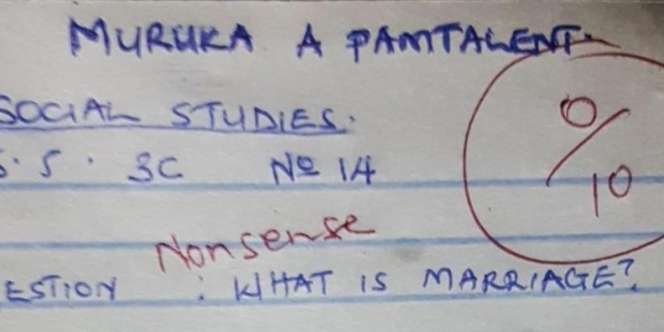 MURUKA A PAMTALENT.
SOCIAL STUDIES.
S.S. 3C № 14
0/10
Nonsense
ESTION : WHAT IS MARRIAGE?